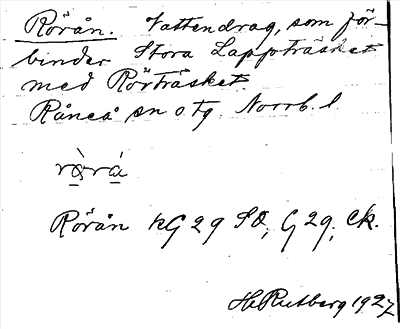 Rörån. Vattendrag, som för-
binder Stora Lappträsket
med Rörträsket.
Råneå sn o tg. Norrb. l.
Rörån hG 29 SO, G 29, Ek.
H Rutberg 1927